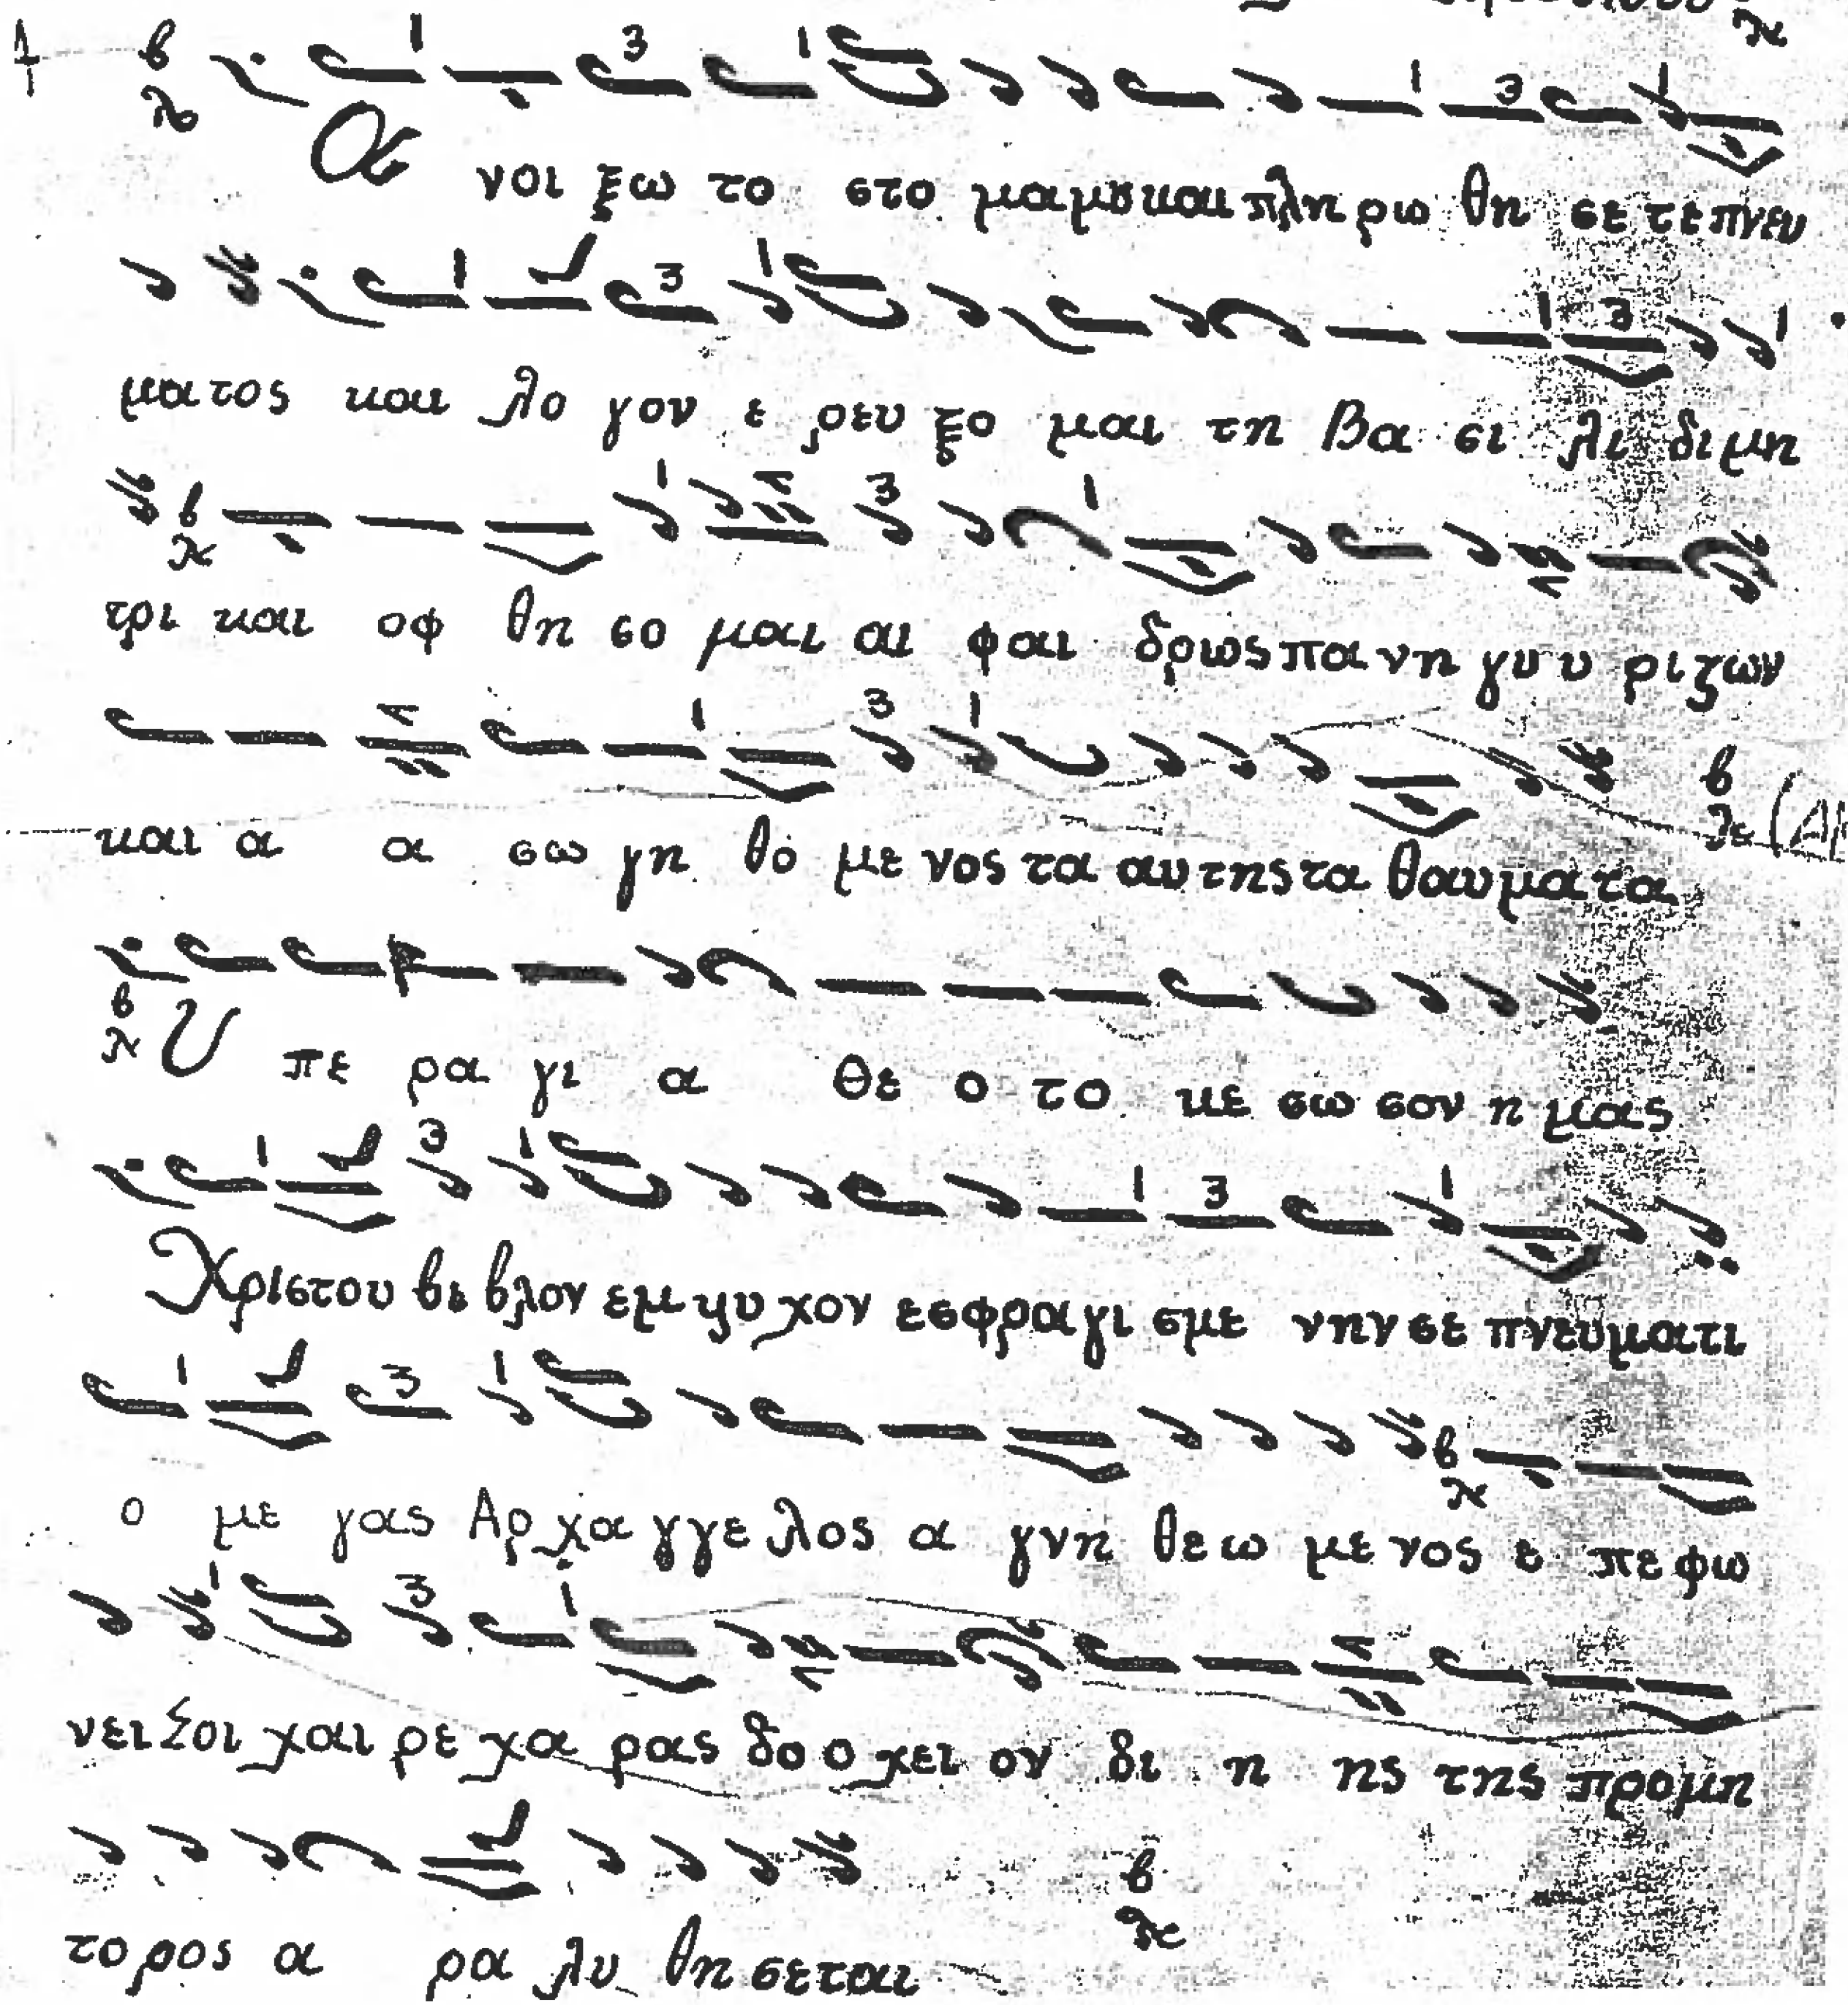 Α νοι ξω το στο μα μȣ και πλη ρω θη σε τε πνευ
ματος και λο γον ε ρευ ξο μαι τη Βα σι λι δι μη
τρι και οφ θη σο μαι αι φαι δρως πα νη γυ υ ρι ζων
και α α σω γη θο με νος τα αυ της τα θαυματα
Υ πε ρα γι α Θε ο το κε σω σον η μας
Χριστου βι βλον εμ ψυ χον εσφραγι σμε νην σε πνευματι
ο με γας Αρ χα γγε λος α γνη θε ω με νος ε πε φω
νει Σοι χαι ρε χα ρας δο ο χει ον δι η ης της προμη
το ρος α ρα λυ θη σεται